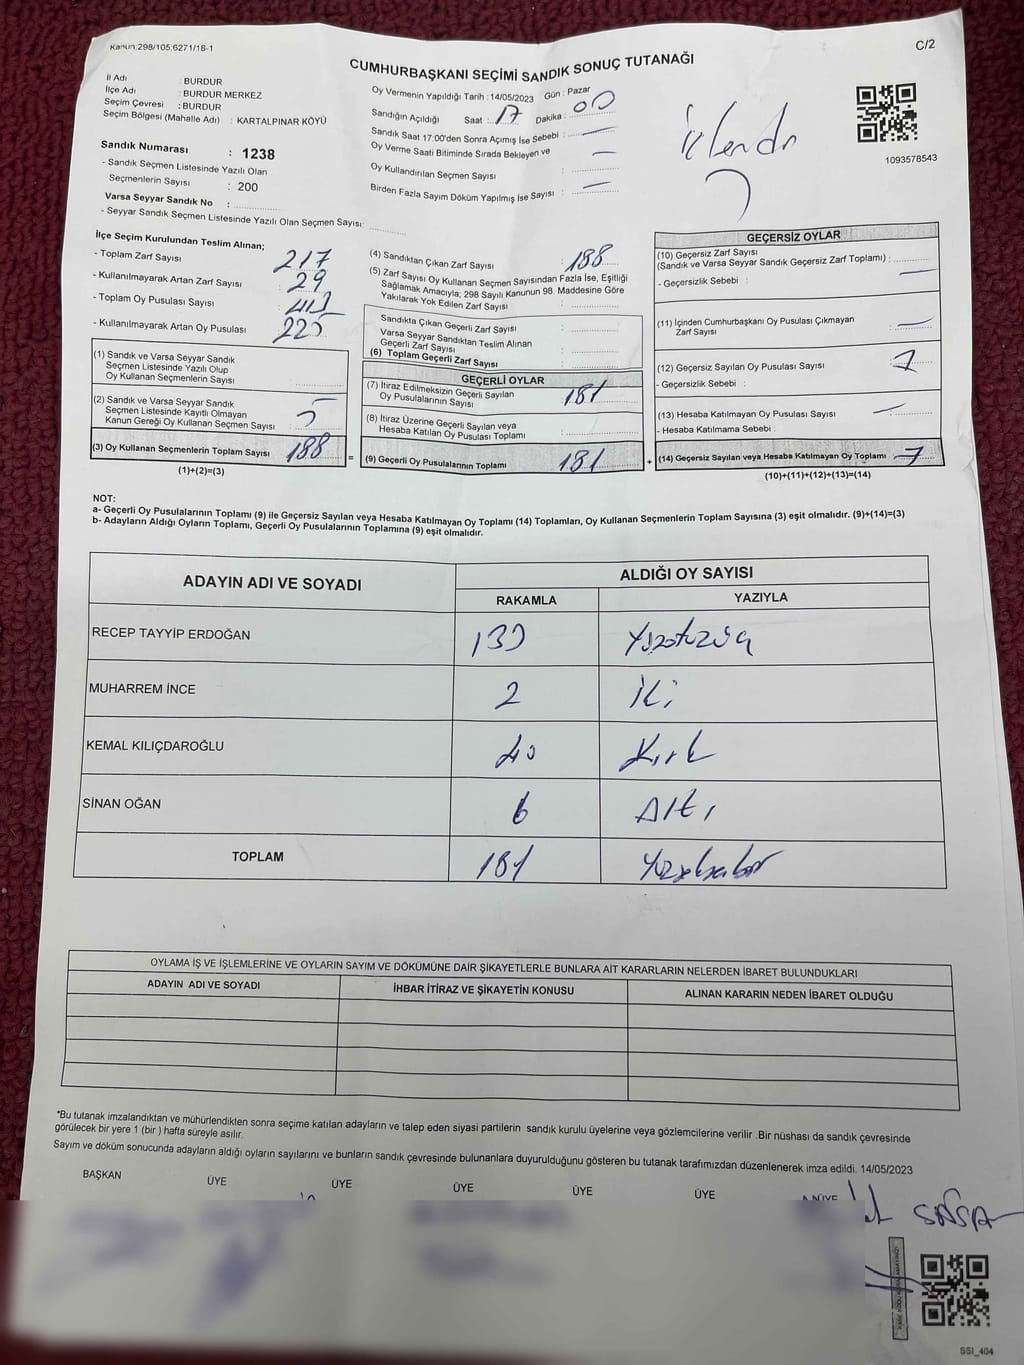 Kanun:298/105;6271/18-1
C/2
CUMHURBAŞKANI SEÇİMİ SANDIK SONUÇ TUTANAĞI
İl Adı : BURDUR
İlçe Adı : BURDUR MERKEZ
Seçim Çevresi : BURDUR
Seçim Bölgesi (Mahalle Adı) : KARTALPINAR KÖYÜ
Sandık Numarası : 1238
- Sandık Seçmen Listesinde Yazılı Olan
Seçmenlerin Sayısı : 200
Varsa Seyyar Sandık No :
- Seyyar Sandık Seçmen Listesinde Yazılı Olan Seçmen Sayısı:
Oy Vermenin Yapıldığı Tarih : 14/05/2023 Gün : Pazar
Sandığın Açıldığı Saat : 17 Dakika : 00
Sandık Saat 17:00'den Sonra Açımış İse Sebebi : —
Oy Verme Saati Bitiminde Sırada Bekleyen ve —
Oy Kullandırılan Seçmen Sayısı :
Birden Fazla Sayım Döküm Yapılmış İse Sayısı : —
1093578543
İlçe Seçim Kurulundan Teslim Alınan;
- Toplam Zarf Sayısı : 217
- Kullanılmayarak Artan Zarf Sayısı : 29
- Toplam Oy Pusulası Sayısı :
- Kullanılmayarak Artan Oy Pusulası : 225
(1) Sandık ve Varsa Seyyar Sandık
Seçmen Listesinde Yazılı Olup
Oy Kullanan Seçmenlerin Sayısı
(2) Sandık ve Varsa Seyyar Sandık
Seçmen Listesinde Kayıtlı Olmayan
Kanun Gereği Oy Kullanan Seçmen Sayısı :
(3) Oy Kullanan Seçmenlerin Toplam Sayısı 188
(1)+(2)=(3)
(4) Sandıktan Çıkan Zarf Sayısı : 188
(5) Zarf Sayısı Oy Kullanan Seçmen Sayısından Fazla İse, Eşitliği
Sağlamak Amacıyla; 298 Sayılı Kanunun 98. Maddesine Göre
Yakılarak Yok Edilen Zarf Sayısı :
Sandıkta Çıkan Geçerli Zarf Sayısı :
Varsa Seyyar Sandıktan Teslim Alınan
Geçerli Zarf Sayısı :
(6) Toplam Geçerli Zarf Sayısı :
GEÇERLİ OYLAR
(7) İtiraz Edilmeksizin Geçerli Sayılan
Oy Pusulalarının Sayısı : 181
(8) İtiraz Üzerine Geçerli Sayılan veya
Hesaba Katılan Oy Pusulası Toplamı :
= (9) Geçerli Oy Pusulalarının Toplamı 181 +
GEÇERSİZ OYLAR
(10) Geçersiz Zarf Sayısı
(Sandık ve Varsa Seyyar Sandık Geçersiz Zarf Toplamı) :
- Geçersizlik Sebebi : —
(11) İçinden Cumhurbaşkanı Oy Pusulası Çıkmayan
Zarf Sayısı : —
(12) Geçersiz Sayılan Oy Pusulası Sayısı : 7
- Geçersizlik Sebebi :
(13) Hesaba Katılmayan Oy Pusulası Sayısı : —
- Hesaba Katılmama Sebebi :
(14) Geçersiz Sayılan veya Hesaba Katılmayan Oy Toplamı 7
(10)+(11)+(12)+(13)=(14)
NOT:
a- Geçerli Oy Pusulalarının Toplamı (9) ile Geçersiz Sayılan veya Hesaba Katılmayan Oy Toplamı (14) Toplamları, Oy Kullanan Seçmenlerin Toplam Sayısına (3) eşit olmalıdır. (9)+(14)=(3)
b- Adayların Aldığı Oyların Toplamı, Geçerli Oy Pusulalarının Toplamına (9) eşit olmalıdır.
ADAYIN ADI VE SOYADI ALDIĞI OY SAYISI
RAKAMLA YAZIYLA
RECEP TAYYİP ERDOĞAN 133 Yüzotuzüç
MUHARREM İNCE 2 İki
KEMAL KILIÇDAROĞLU 40 Kırk
SİNAN OĞAN 6 Altı
TOPLAM 181 Yüzseksenbir
OYLAMA İŞ VE İŞLEMLERİNE VE OYLARIN SAYIM VE DÖKÜMÜNE DAİR ŞİKAYETLERLE BUNLARA AİT KARARLARIN NELERDEN İBARET BULUNDUKLARI
ADAYIN ADI VE SOYADI İHBAR İTİRAZ VE ŞİKAYETİN KONUSU ALINAN KARARIN NEDEN İBARET OLDUĞU
*Bu tutanak imzalandıktan ve mühürlendikten sonra seçime katılan adayların ve talep eden siyasi partilerin sandık kurulu üyelerine veya gözlemcilerine verilir .Bir nüshası da sandık çevresinde
görülecek bir yere 1 (bir ) hafta süreyle asılır.
Sayım ve döküm sonucunda adayların aldığı oyların sayılarını ve bunların sandık çevresinde bulunanlara duyurulduğunu gösteren bu tutanak tarafımızdan düzenlenerek imza edildi. 14/05/2023
BAŞKAN ÜYE ÜYE ÜYE ÜYE ÜYE
SSI_404